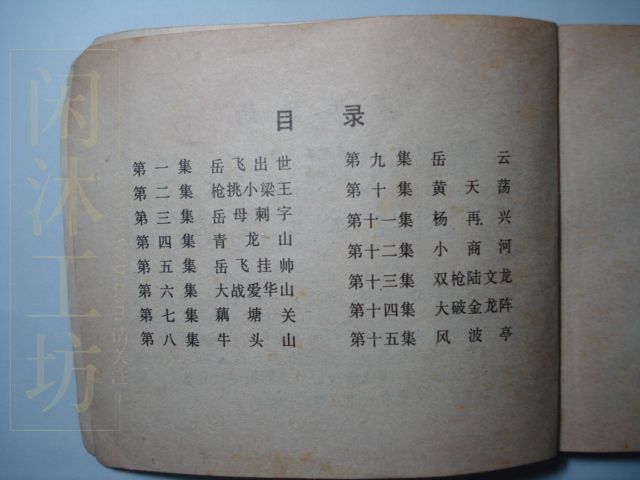 目 录
第一集 岳飞出世
第二集 枪挑小梁王
第三集 岳母刺字
第四集 青龙山
第五集 岳飞挂帅
第六集 大战爱华山
第七集 藕塘关
第八集 牛头山
第九集 岳云
第十集 黄天荡
第十一集 杨再兴
第十二集 小商河
第十三集 双枪陆文龙
第十四集 大破金龙阵
第十五集 风波亭
闲沐工坊